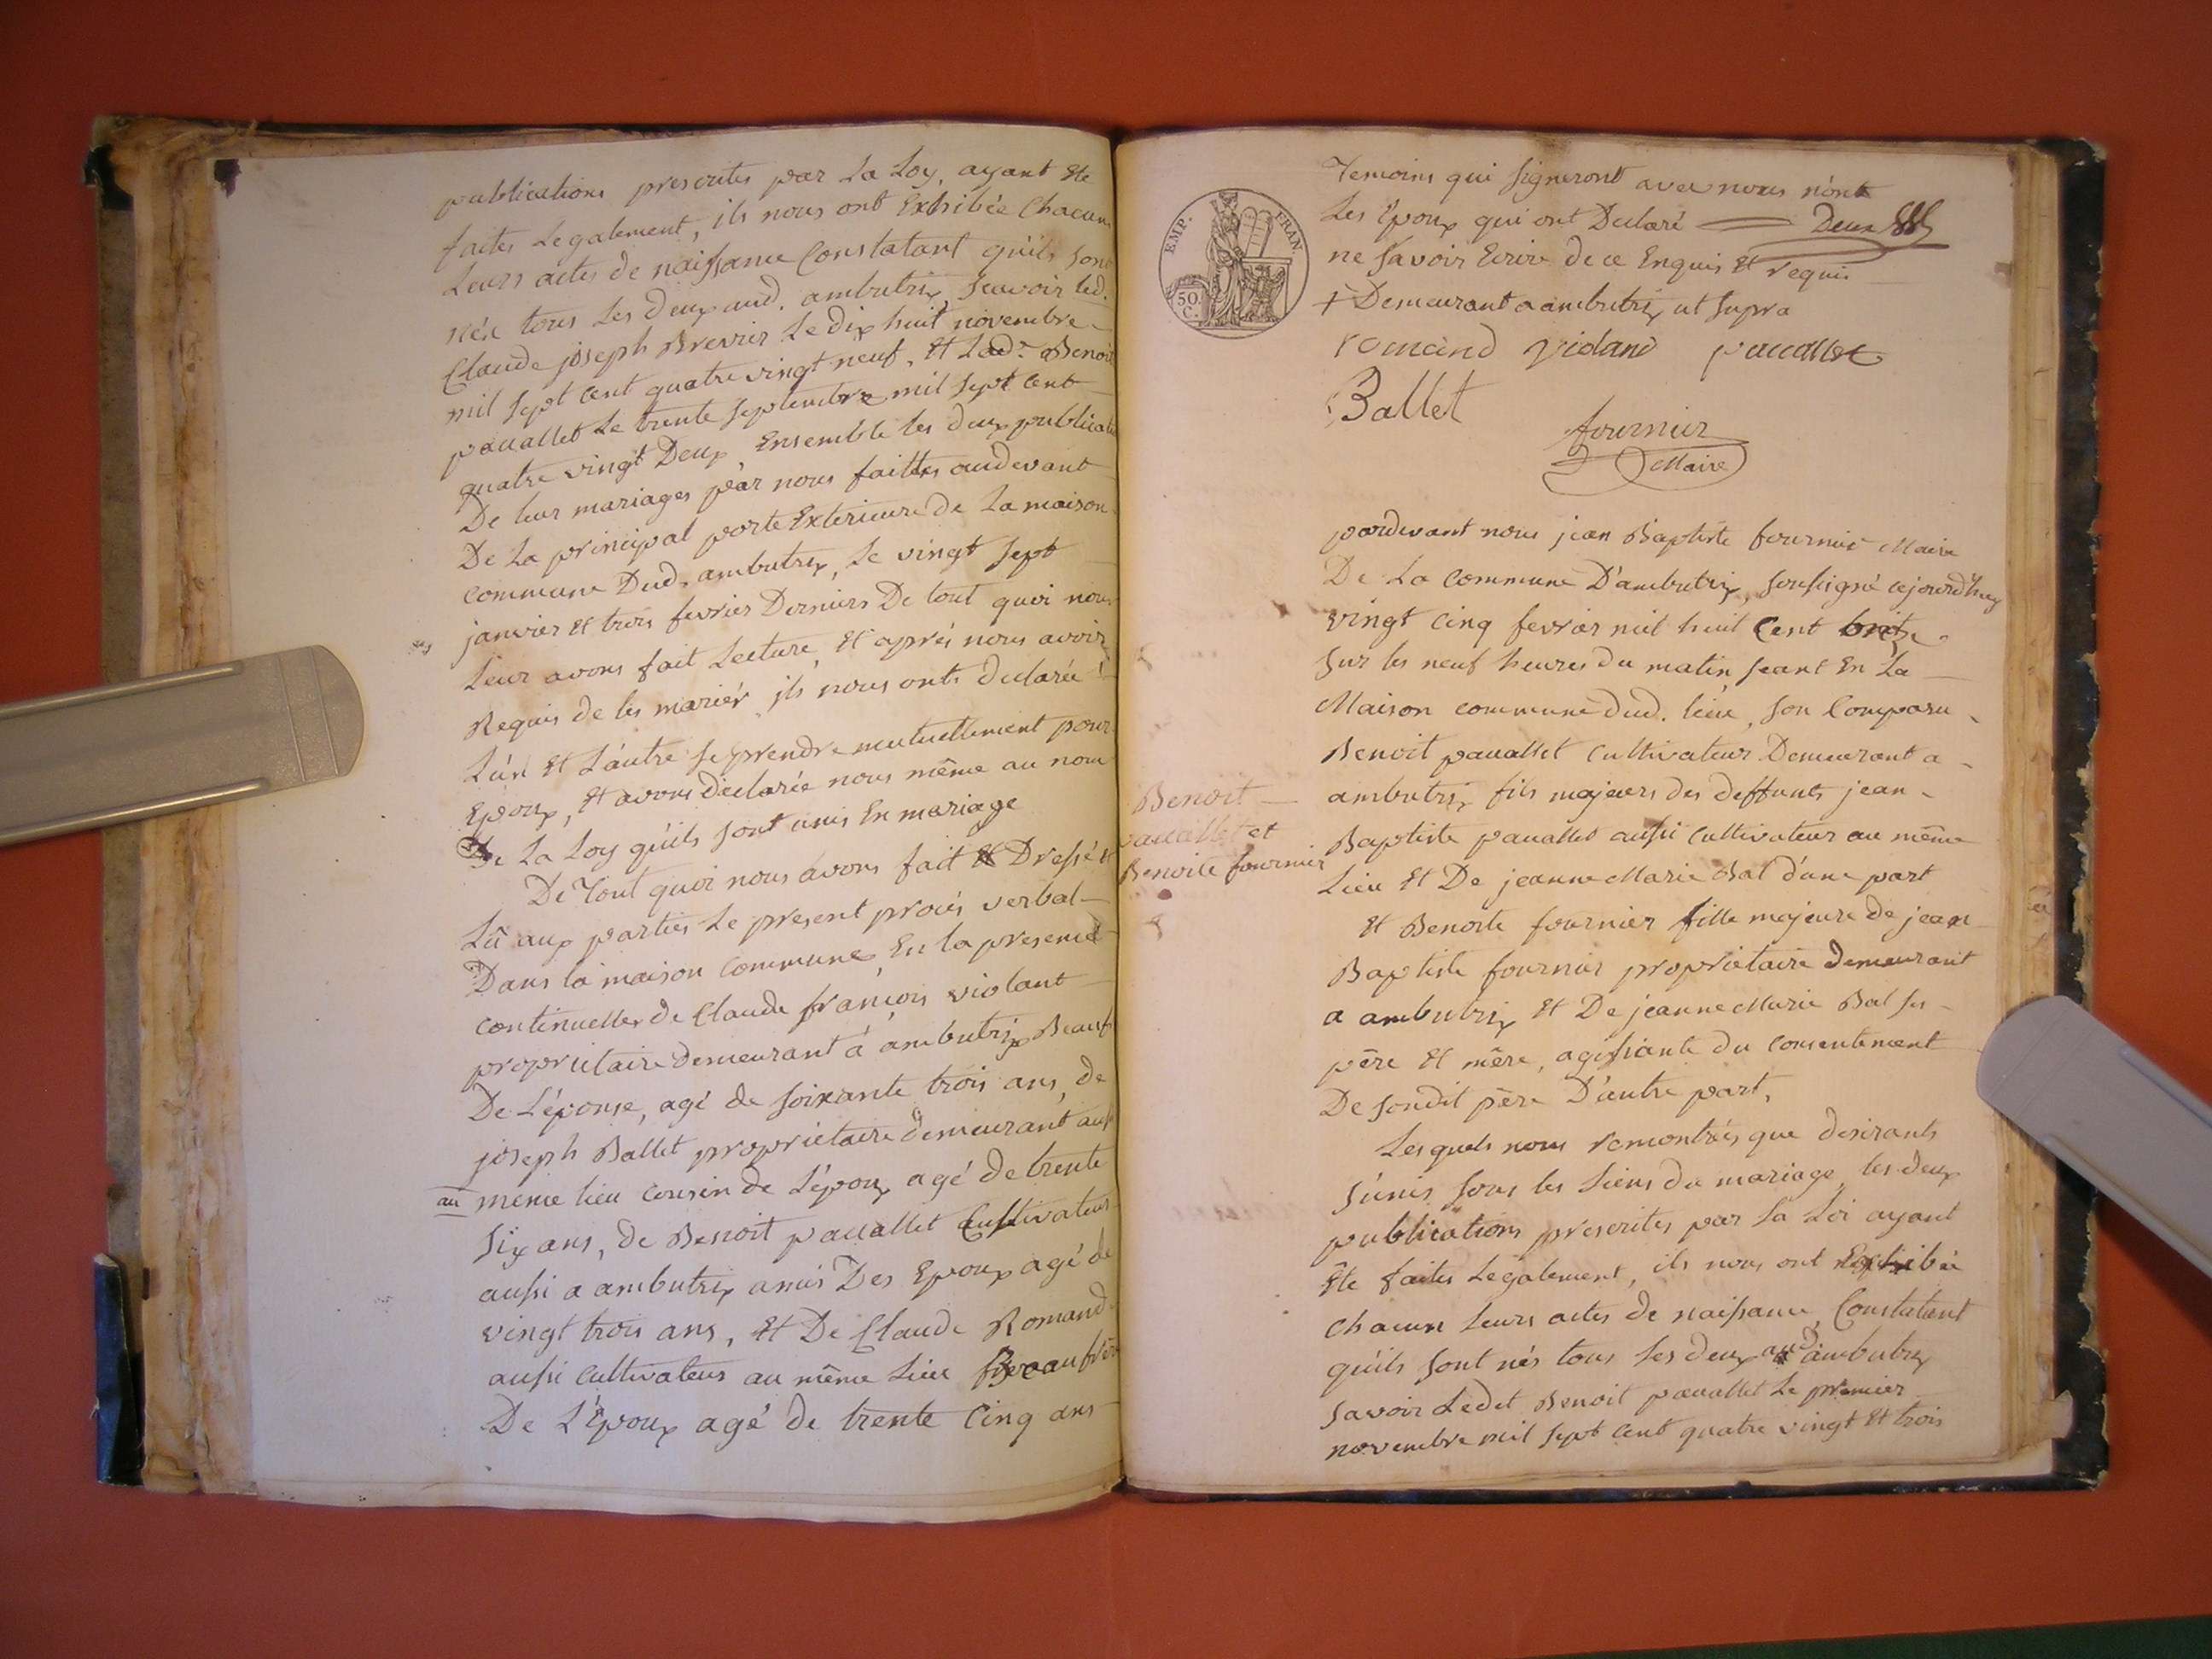 publications prescrites par La Loy, ayant Ete
faites Legalement, ils nous ont Exhibée Chacun
Leurs actes de naissance Constatant qu'ils sont
née tous Les deux aud. ambutrix, scavoir led.
Claude joseph Brevier Le dix huit novembre
mil sept cent quatre vingt neuf, Et Lade Benoite
pauallet Le trente septembre mil sept cent
quatre vingt Deux Ensemble les deux publications
De leur mariages par nous faittes audevant
De La principal porte Exterieure de La maison
commune Dud. ambutrix, Le vingt sept
janvier Et trois fevrier Derniers De tout quoi nous
Leur avons fait Lecture, Et aprés nous avoir
Requis de les mariér ils nous onts declarée
L'un Et L'autre se prendre mutuellement pour
Epoux, Et avons declarée nous même au nom
De La Loy qu'ils sont unis En mariage
De Tout quoi nous avons fait Et Dressé et
Lû aux parties Le present procés verbal
Dans la maison commune, En la presence
continuelle de Claude françois violant
proprietaire demeurant á ambutrix Beaufr
De L'épouse, agé de soixante trois ans, de
joseph Ballet proprietaire demeurant aus
au même lieu cousin de L'époux agé de trente
six ans, de Benoit pauallet Cultivateur
aussi a ambutrix amis Des Epoux agé de
vingt trois ans, Et De Claude Romand
aussi cultivateur au même Lieu Beaufrere
De L'époux agé de trente cinq ans
EMP. FRAN.
50 C.
Temoins qui signeront avec nous nont
Les Epoux qui ont Declaré Deux
ne savoir Ecrire de ce Enquis Et requis
+ Demeurant a ambutrix ut supra
romand violand pauallet
Ballet
fournier
Maire
Benoit
pauallet et
Benoite fournier
pardevant nous jean Baptiste fournier Maire
De La commune D'ambutrix, soussigné cejourd'huy
vingt cinq fevrier mil huit Cent
sur les neuf heures du matin, seant En La
Maison commune dud. lieu, son Comparu
Benoit pauallet cultivateur Demeurant a
ambutrix fils majeurs des deffunts jean
Baptiste pauallet aussi cultivateur au même
Lieu Et De jeanne Marie Bal d'une part
Et Benoite fournier fille majeure de jean
Baptiste fournier proprietaire demeurant
a ambutrix Et De jeanne Marie Bal ses
père Et mère, agissante du consentement
De sondit père D'autre part,
Lesquels nous remontrés que desirants
s'unir sous les Liens du mariage, les deux
publications prescrites par La Loi ayant
Ete faites Legalement, ils nous ont Exhibée
chacun Leurs actes de naissance, Constatant
qu'ils sont nés tous Les deux aud ambutrix
savoir Ledet Benoit pauallet Le premier
novembre mil sept cent quatre vingt Et trois